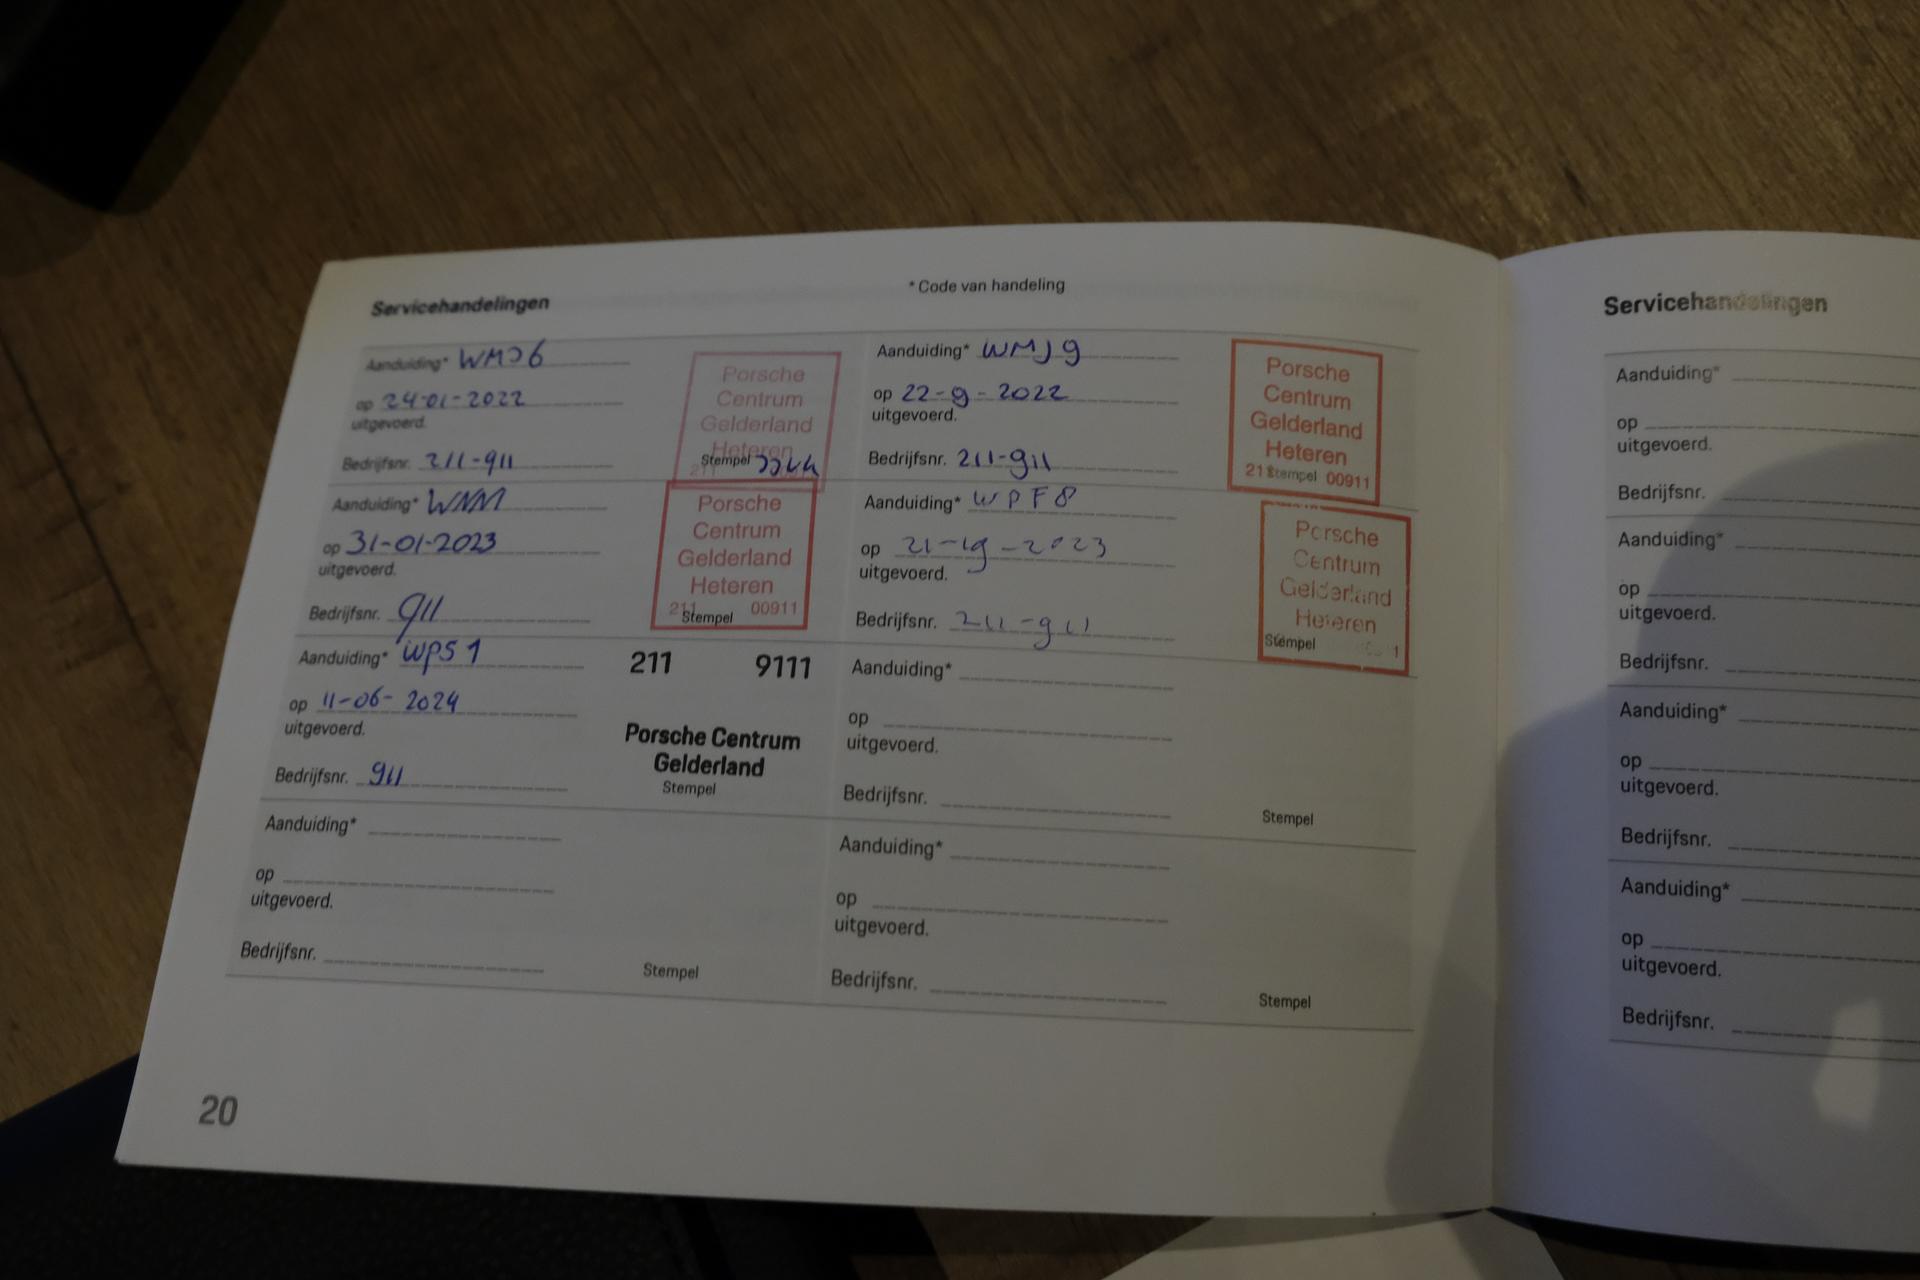 Servicehandelingen
* Code van handeling
Aanduiding* WMJ6
op 24-01-2022
uitgevoerd.
Bedrijfsnr. 211-911
Porsche
Centrum
Gelderland
Heteren
211
Stempel
Aanduiding* WMJ9
op 22-9-2022
uitgevoerd.
Bedrijfsnr. 211-911
Porsche
Centrum
Gelderland
Heteren
211 Stempel 00911
Aanduiding* WNM1
op 31-01-2023
uitgevoerd.
Bedrijfsnr. 911
Porsche
Centrum
Gelderland
Heteren
211 00911
Stempel
Aanduiding* WPF8
op
uitgevoerd.
Bedrijfsnr. 211-911
Porsche
Centrum
Gelderland
Heteren
Stempel 1
Aanduiding* WPS1
op 11-06-2024
uitgevoerd.
Bedrijfsnr. 911
211 9111
Porsche Centrum
Gelderland
Stempel
Aanduiding*
op
uitgevoerd.
Bedrijfsnr.
Stempel
Aanduiding*
op
uitgevoerd.
Bedrijfsnr.
Stempel
Aanduiding*
op
uitgevoerd.
Bedrijfsnr.
Stempel
20
Servicehandelingen
Aanduiding*
op
uitgevoerd.
Bedrijfsnr.
Aanduiding*
op
uitgevoerd.
Bedrijfsnr.
Aanduiding*
op
uitgevoerd.
Bedrijfsnr.
Aanduiding*
op
uitgevoerd.
Bedrijfsnr.